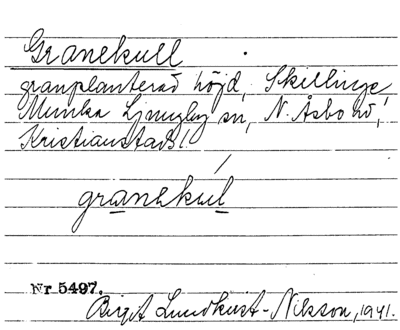 Granekull
granplanterad höjd, Skillinge,
Munka Ljungby sn, N. Åsbo hd,
Kristianstads l.
granekul
Nr 5497.
Birgit Lundkvist-Nilsson, 1941.